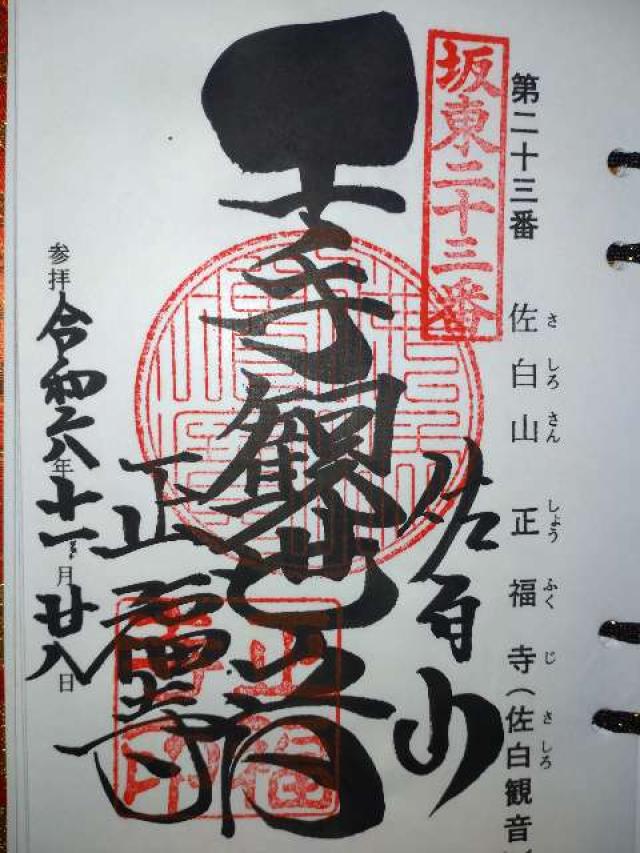 第二十三番 佐白山 正福寺(佐白観音
さしろさん しょうふくじ さしろ
坂東二十三番
佐白山
千手観世音
正福寺
正福寺印
参拝 令和六年十一月廿八日